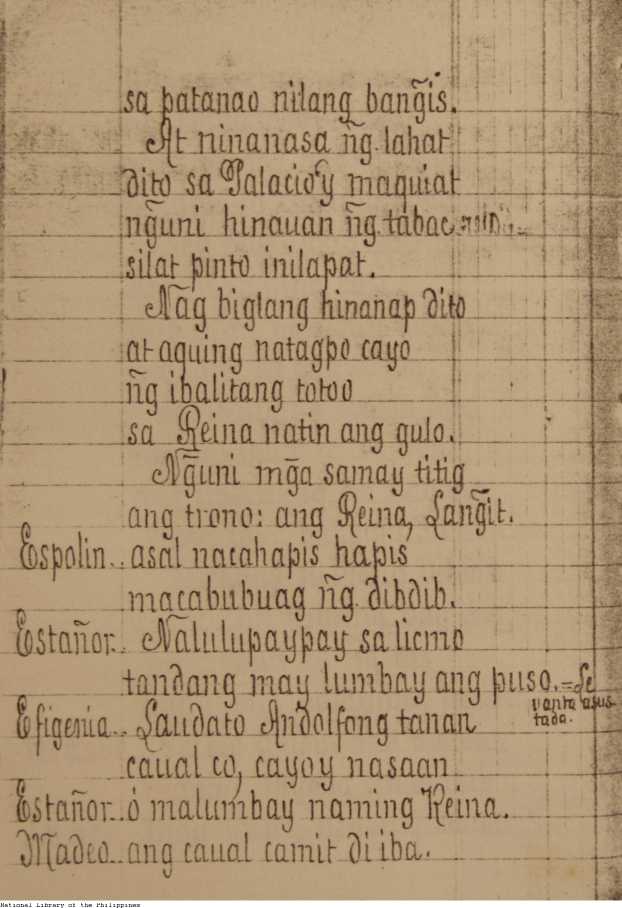 sa patanao nilang bang̃is.
At ninanasa ñg lahat
dito sa Palacio'y maquiat
ng̃uni hinauan ñg tabac
silat pinto inilapat.
Nag biglang hinanap dito
at aquing natagpo cayo
ñg ibalitang totoo
sa Reina natin ang gulo.
Ng̃uni mg̃a samay titig
ang trono: ang Reina, Lang̃it.
Espolin.. asal nacahapis hapis
macabubuag ñg dibdib.
Estañor.. Nalulupaypay sa licmo
tandang may lumbay ang puso. = Se
vanta asus
tada.
Efigenia.. Laudato Andolfong tanan
caual co, cayoy nasaan
Estañor.. ó malumbay naming Reina.
Madeo.. ang caual camit di iba.
National Library of the Philippines